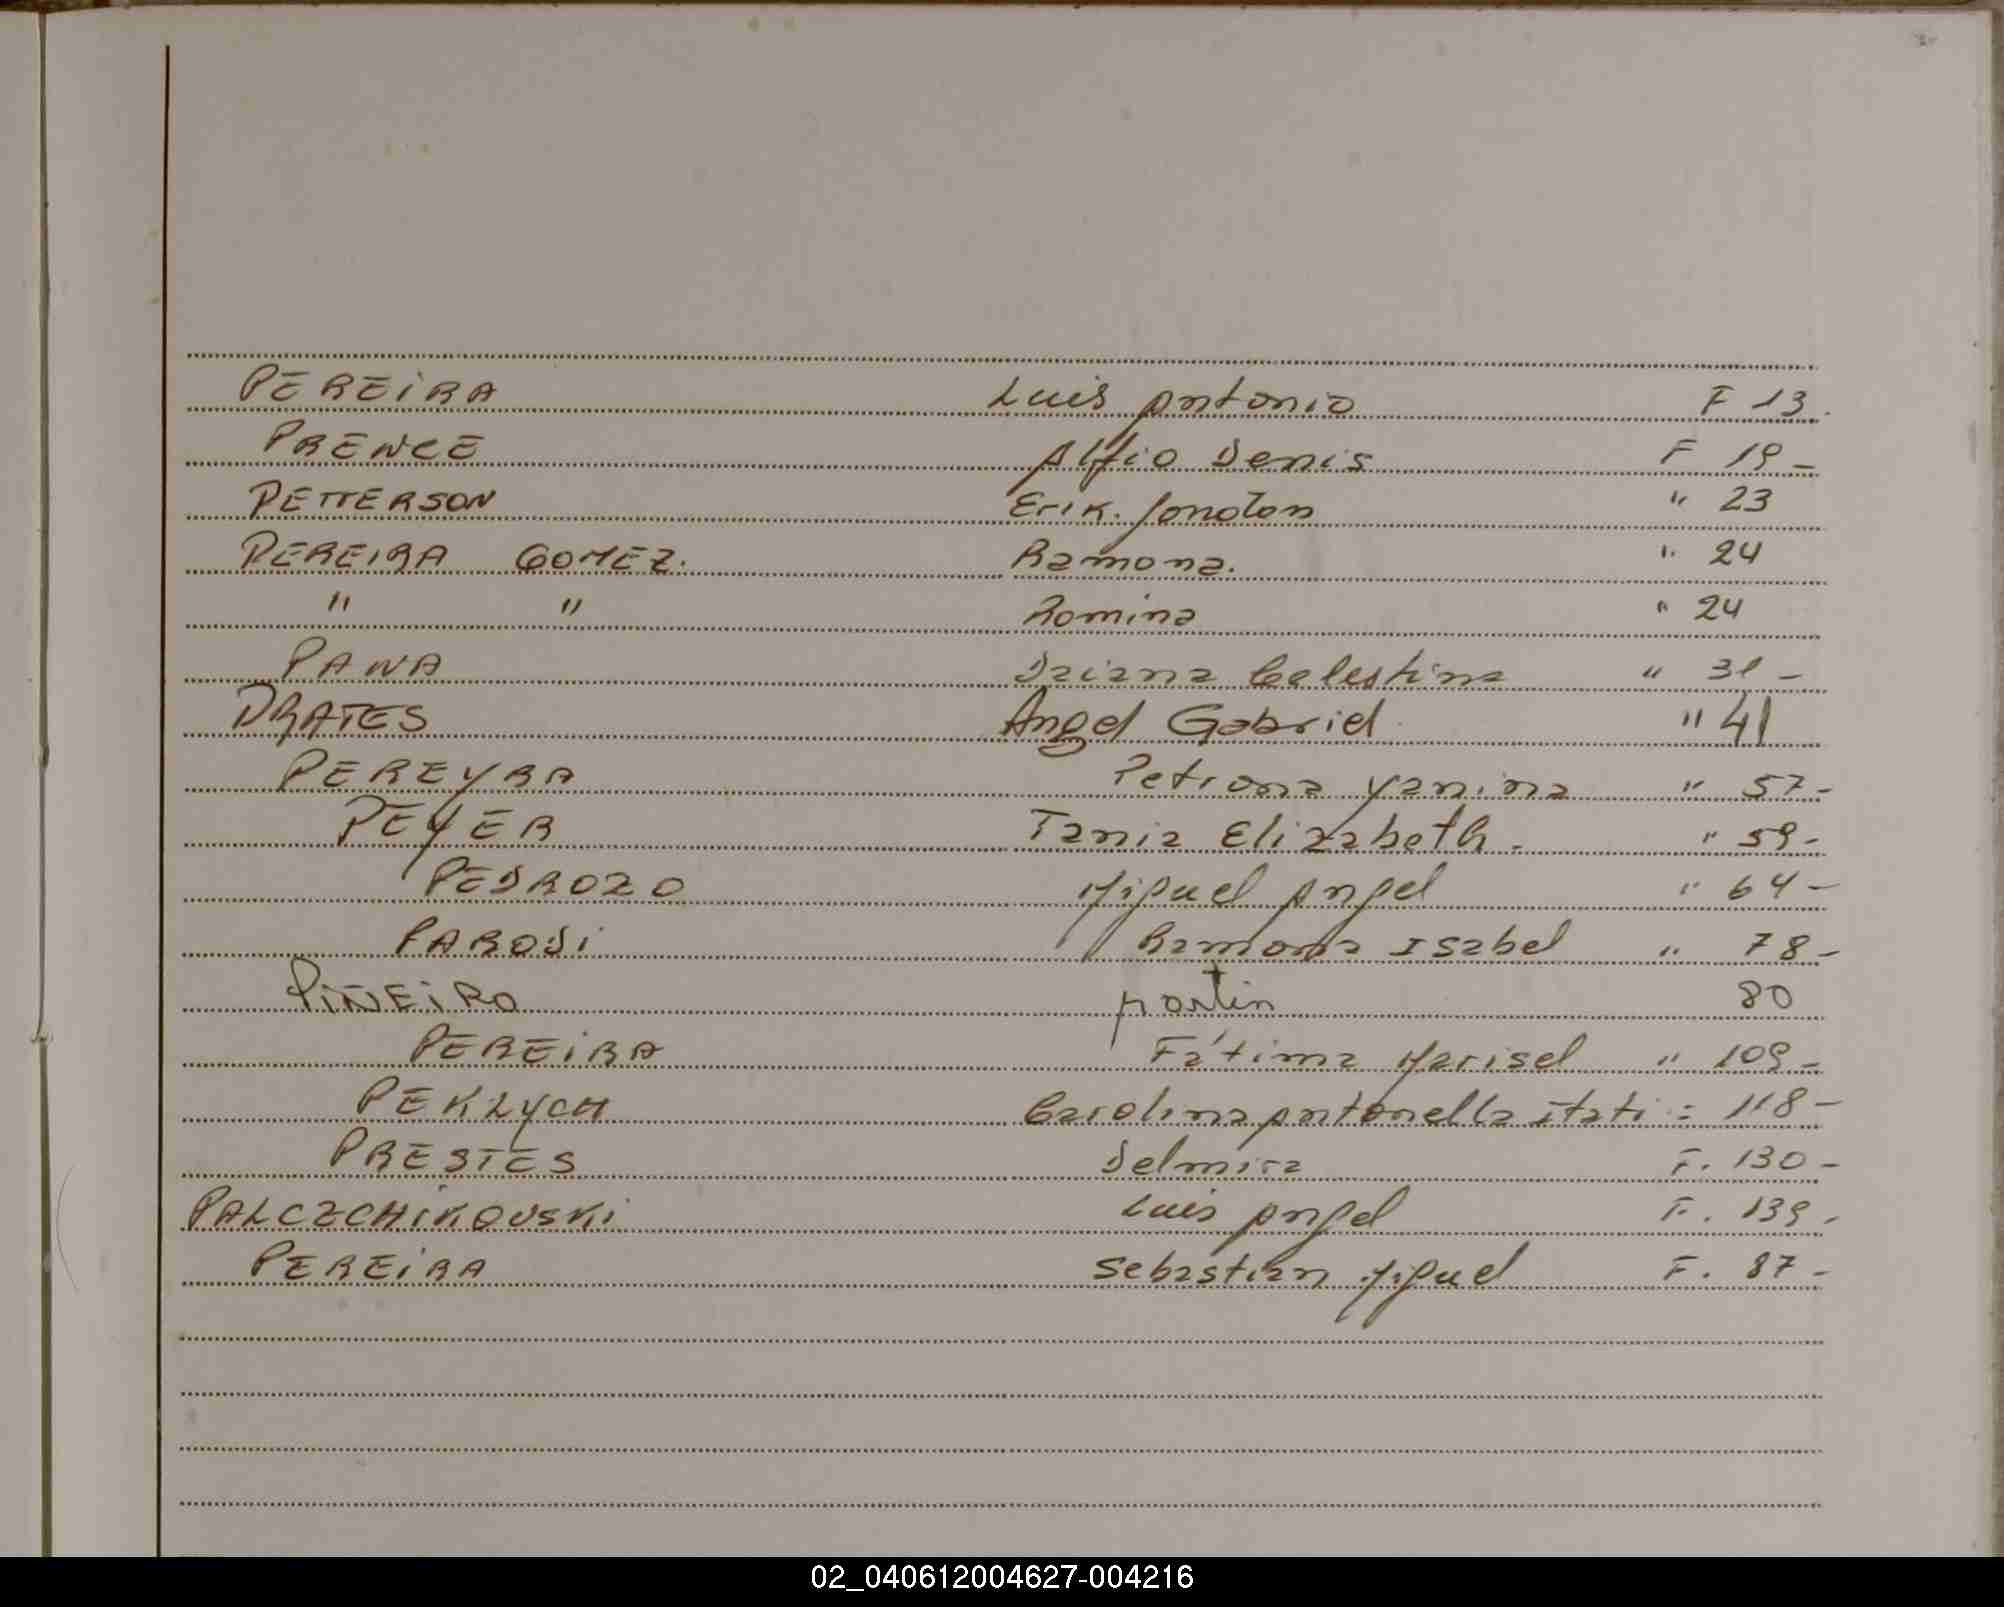 PEREIRA Luis Antonio F 13.
PRENCE Alfio Denis F 19 -
PETTERSON Erik. Jonatan " 23
PEREIRA GOMEZ. Ramona. " 24
" " Romina " 24
PAWA Daiana Celestina " 31 -
PRATES Angel Gabriel " 41
PEREYRA Petrona Yanina " 57 -
PEYER Tania Elizabeth - " 59 -
PEDROZO Miguel Angel " 64 -
PARODI Ramona Isabel " 78 -
PIÑEIRO Martin 80
PEREIRA Fátima Marisel " 109 -
PEKLYCH Carolina Antonella Itati = 118 -
PRESTES Delmira F. 130 -
PALCZCHIKOUSKI Luis Angel F. 139 -
PEREIRA Sebastian Miguel F. 87 -
02_040612004627-004216